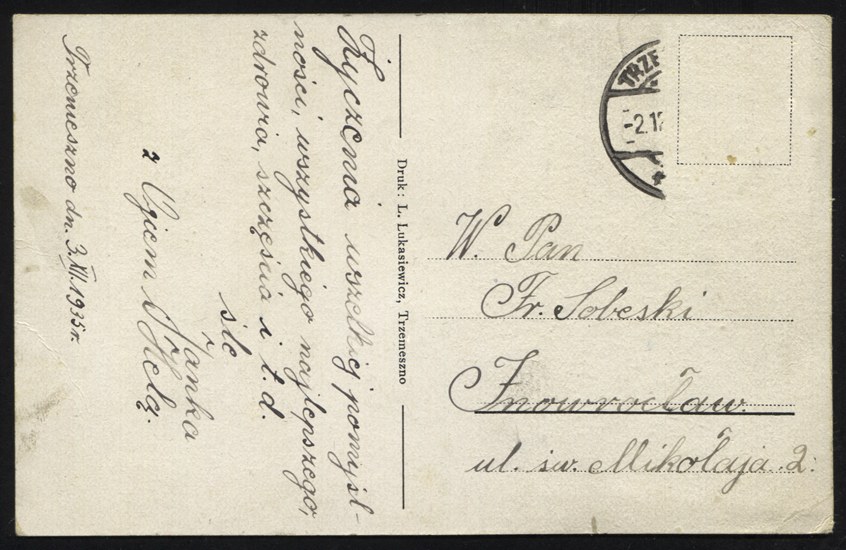 Życzenia wszelkiej pomyśl-
ności, wszystkiego najlepszego,
zdrowia, szczęścia i t. d.
śle
Janka
z Ojcem i Helą.
Trzemeszno dn. 3.XII.1935r.
Druk: L. Lukasiewicz, Trzemeszno
TRZE
-2.12
W. Pan
Fr. Sobeski
Inowrocław.
ul. św. Mikołaja 2.